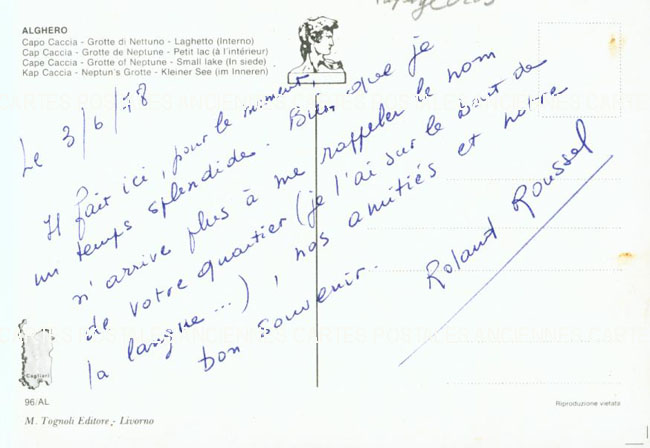 ALGHERO
Capo Caccia - Grotte di Nettuno - Laghetto (Interno)
Cap de Caccia - Grotte de Neptune - Petit lac (à l'intérieur)
Cape Caccia - Grotte of Neptune - Small lake (In siede)
Kap Caccia - Neptun's Grotte - Kleiner See (im Inneren)
Le 3/6/78
Il fait ici, pour le moment,
un temps splendide. Bien que je
n'arrive plus à me rappeler le nom
de votre quartier (je l'ai sur le bout de
la langue...), nos amitiés et notre
bon souvenir.
Roland Roussel
CARTES POSTALES ANCIENNES
Cagliari
96/AL
Riproduzione vietata
M. Tognoli Editore - Livorno